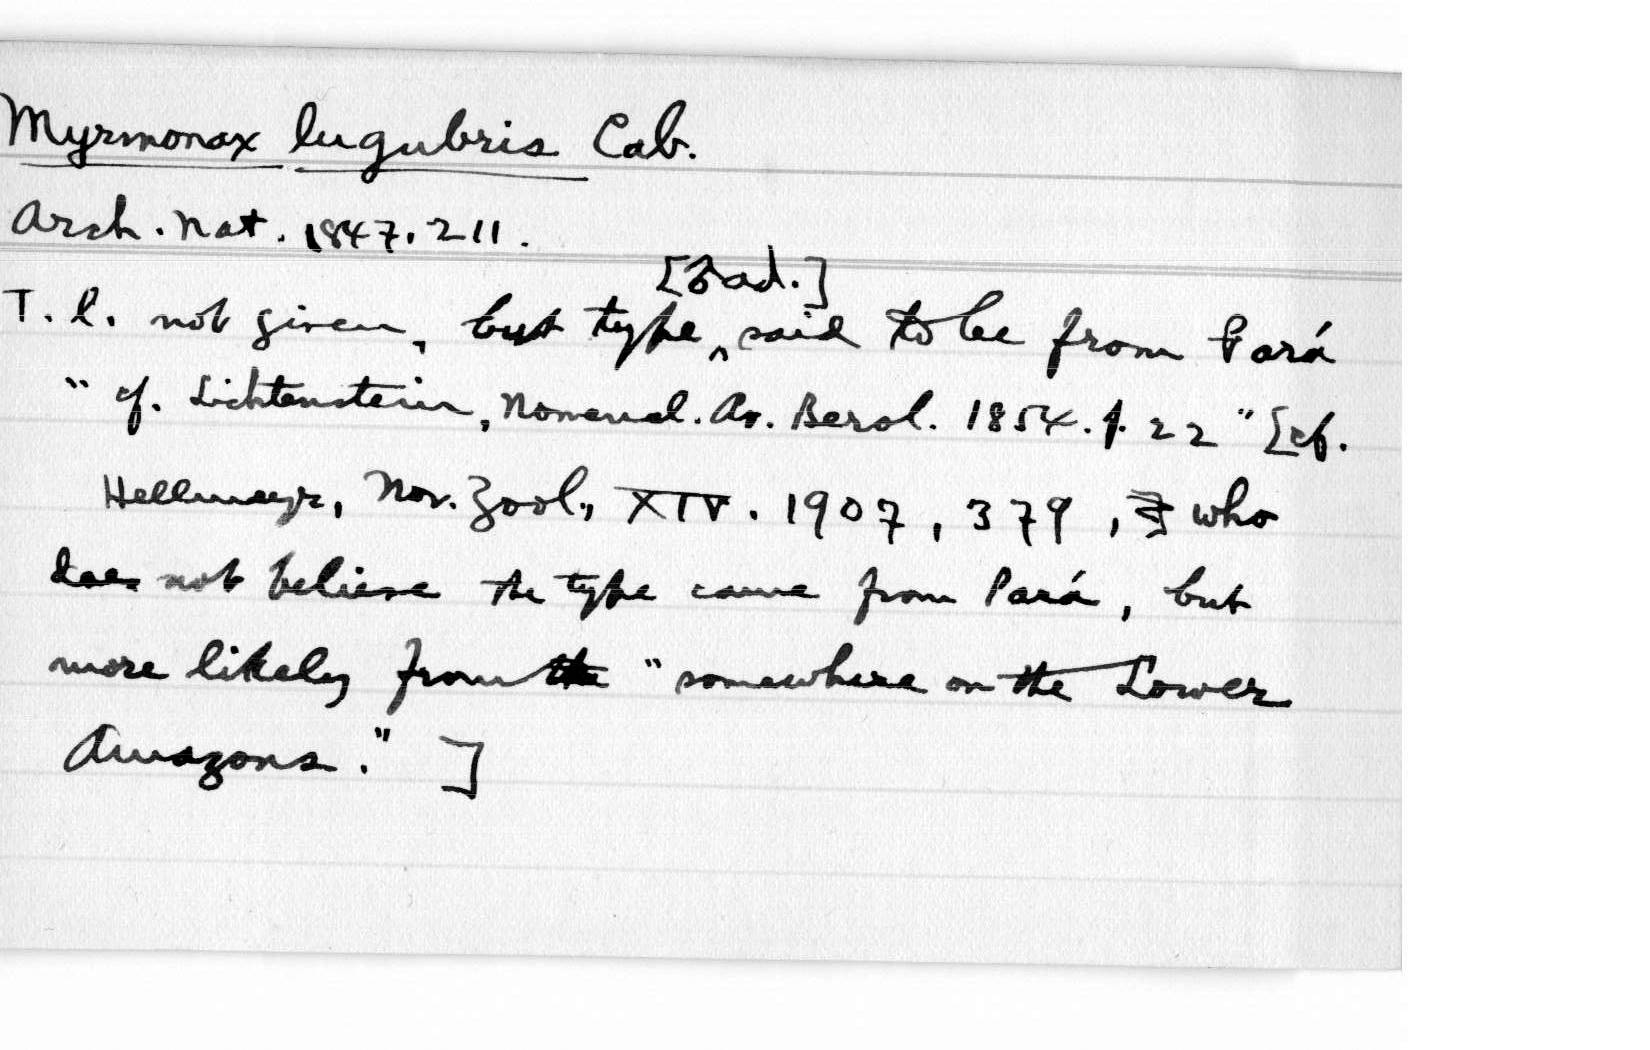 Myrmonax lugubris Cab.
Arch. Nat. 1847. 211.
[♂ ad.]
T. l. not given, but type ^ said to be from Pará
" cf. Lichtenstein, Nomencl. Av. Berol. 1854. p. 22 " [cf.
Hellmayr, Nov. Zool., XIV. 1907, 379, who
does not believe the type came from Pará, but
more likely from the "somewhere on the Lower
Amazons." ]